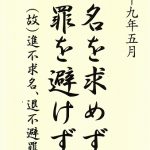 十九年五月
名を求めず
罪を避けず
(故)進不求名、退不避罪